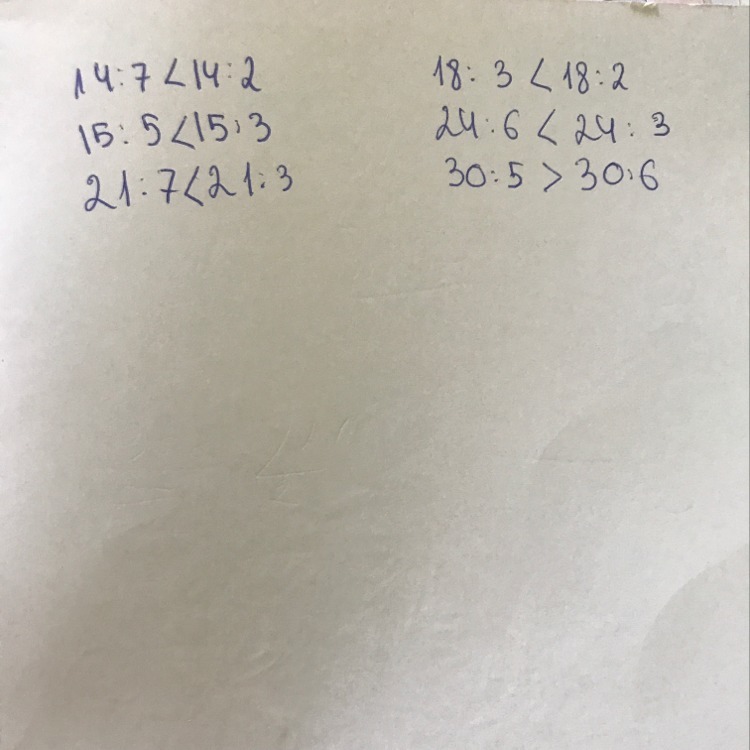 14:7<14:2
15:5<15:3
21:7<21:3
18:3<18:2
24:6<24:3
30:5>30:6